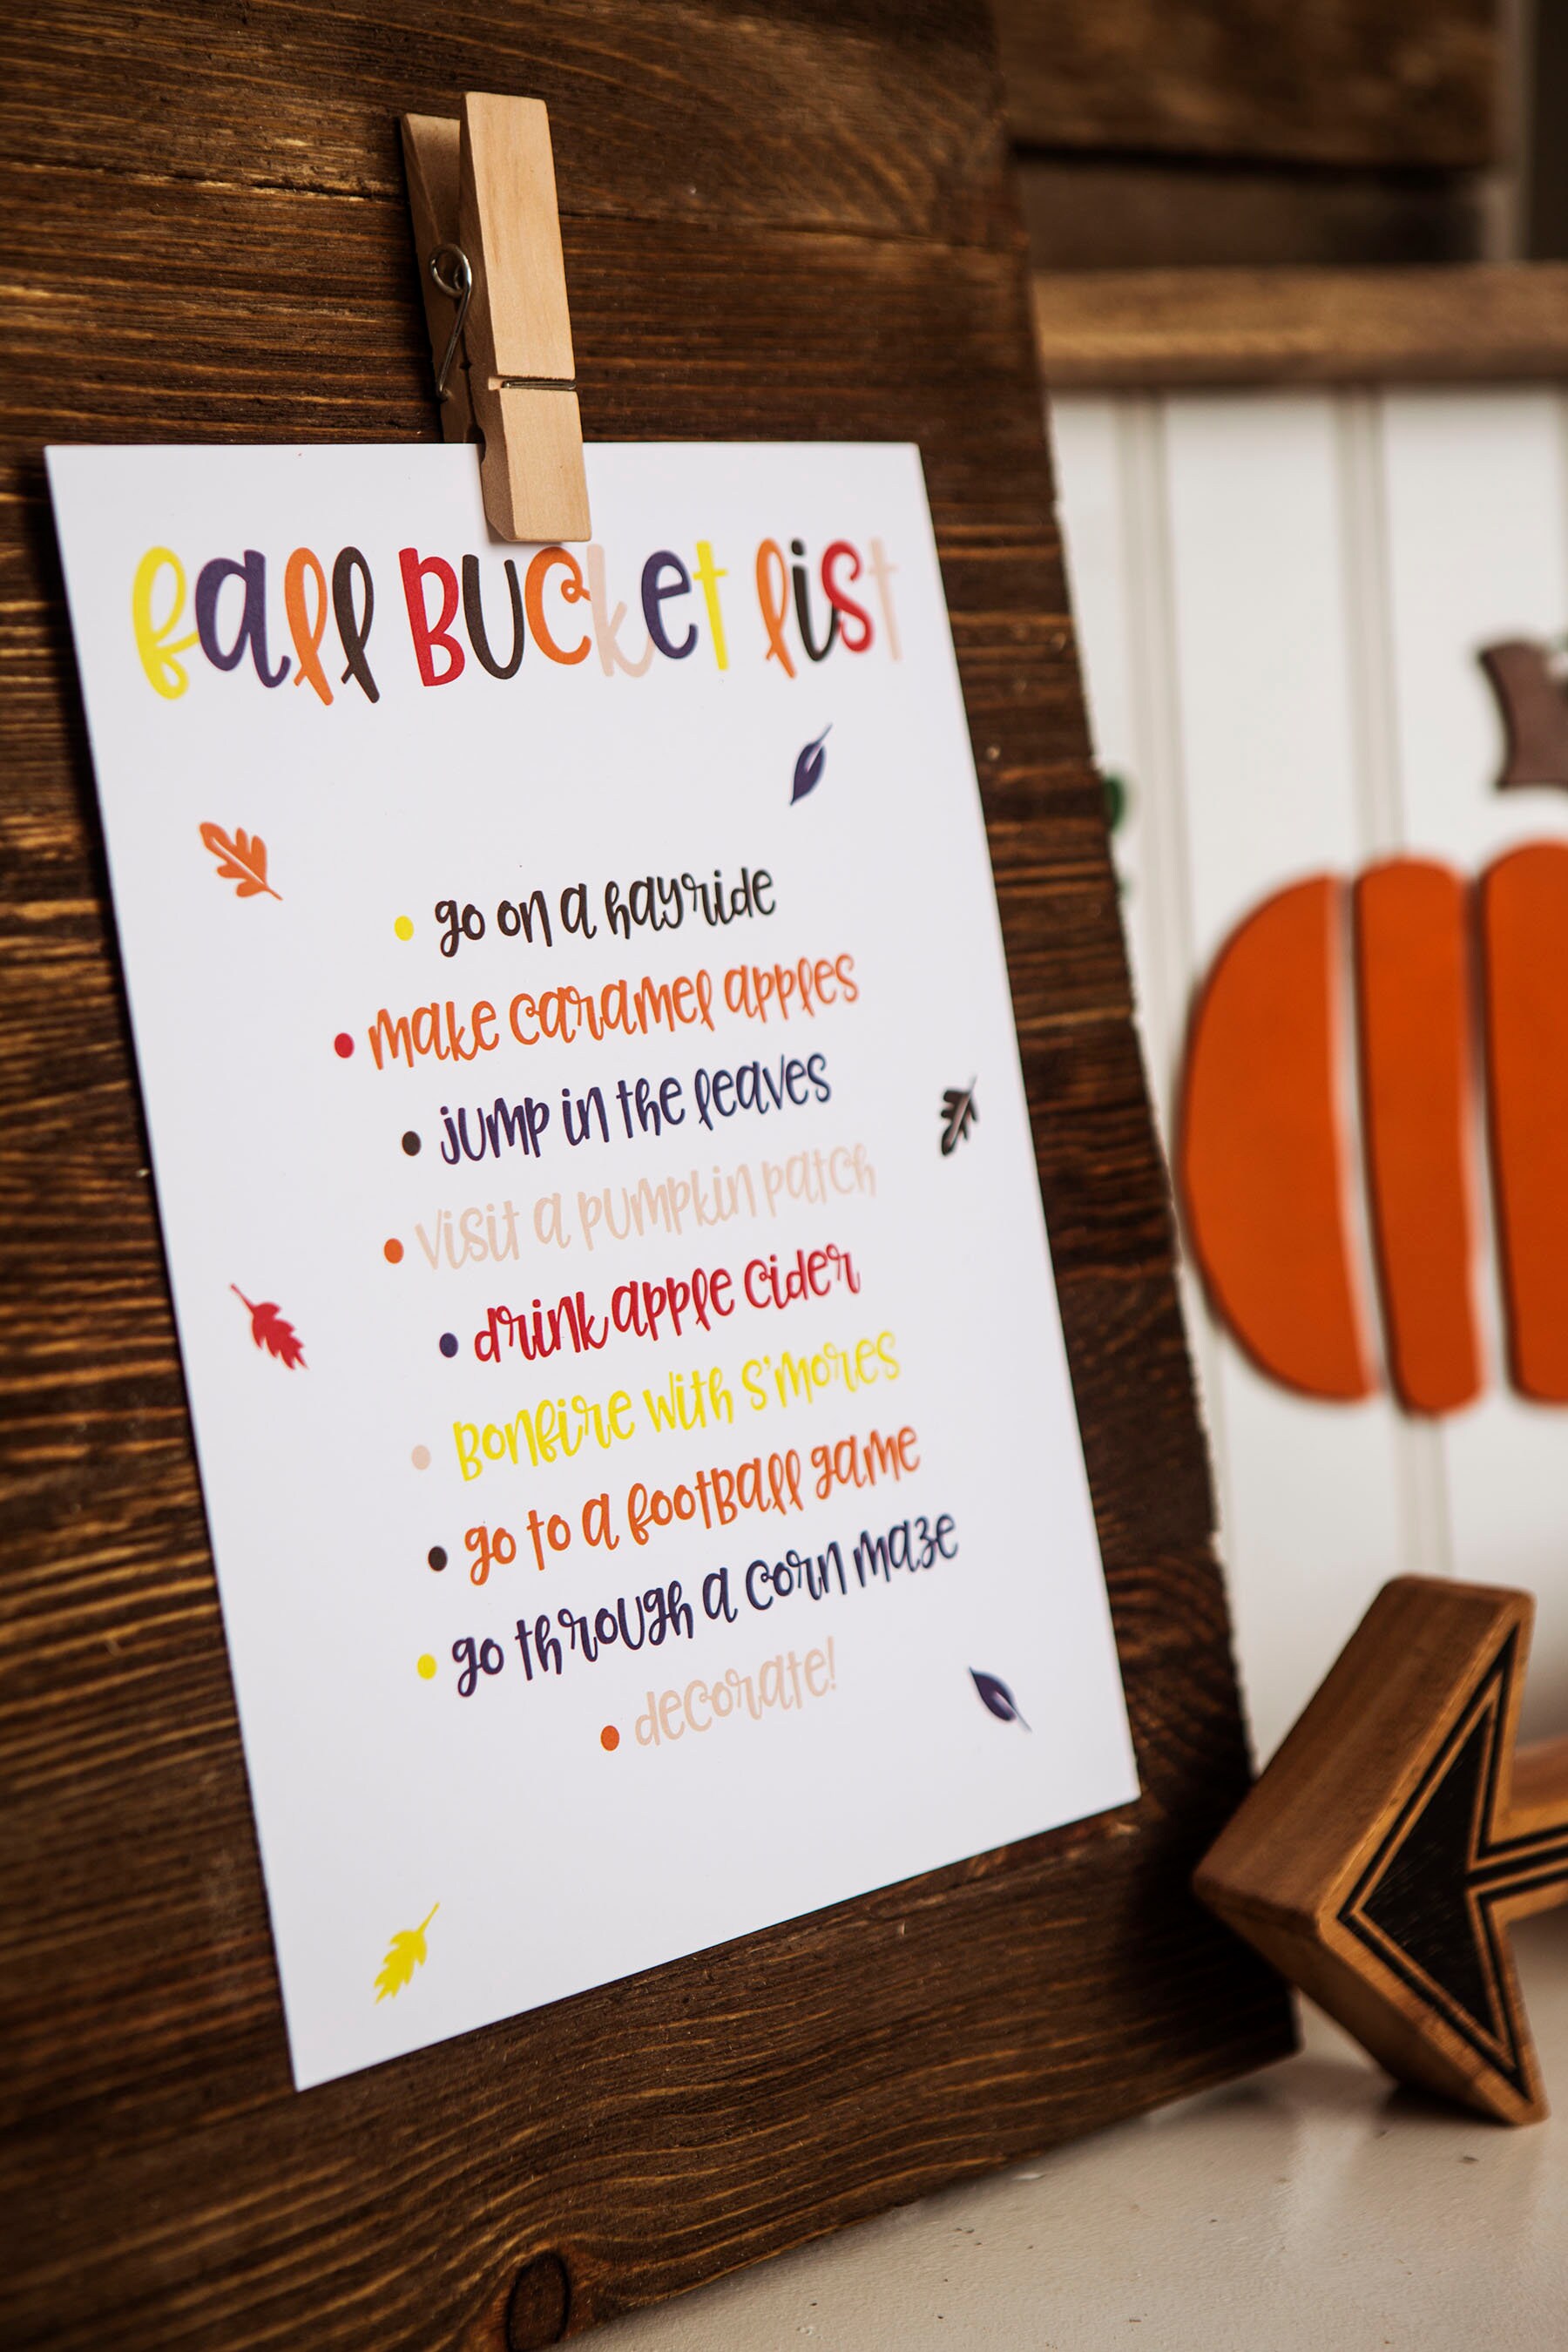 fall Bucket list
• go on a hayride
• make caramel apples
• jump in the leaves
• visit a pumpkin patch
• drink apple cider
• Bonfire with s'mores
• go to a football game
• go through a corn maze
• decorate!